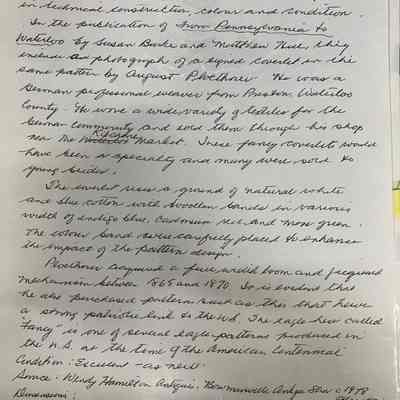 in technical construction, colour and condition.
In the publication of From Pennsylvania to
Waterloo by Susan Burke and Matthew Hill, they
include a photograph of a signed coverlet in the
same pattern by August Ploethner. He was a
German professional weaver from Preston, Waterloo
County. He wove a wide variety of textiles for the
German community and sold them through his shop
near the Kitchener Market. These fancy coverlets would
have been a specialty and many were sold to
young brides.
The coverlet uses a ground of natural white
and blue cotton with woollen bands in various
width of indigo blue, cadmium red and moss green.
The colour bands were carefully placed to enhance
the impact of the pattern design.
Ploethner acquired a four loom and jacquard
mechanism between 1865 and 1870. It is evident that
he also purchased patterns such as this that have
a strong patriotic link to the U.S. The eagle here called
"Fancy" is one of several eagle patterns produced in
the U.S. at the time of the American Centennial
Condition: Excellent - as new
Source: Wendy Hamilton Antiques, Bowmanville Antique Show c 1978
Dimensions: